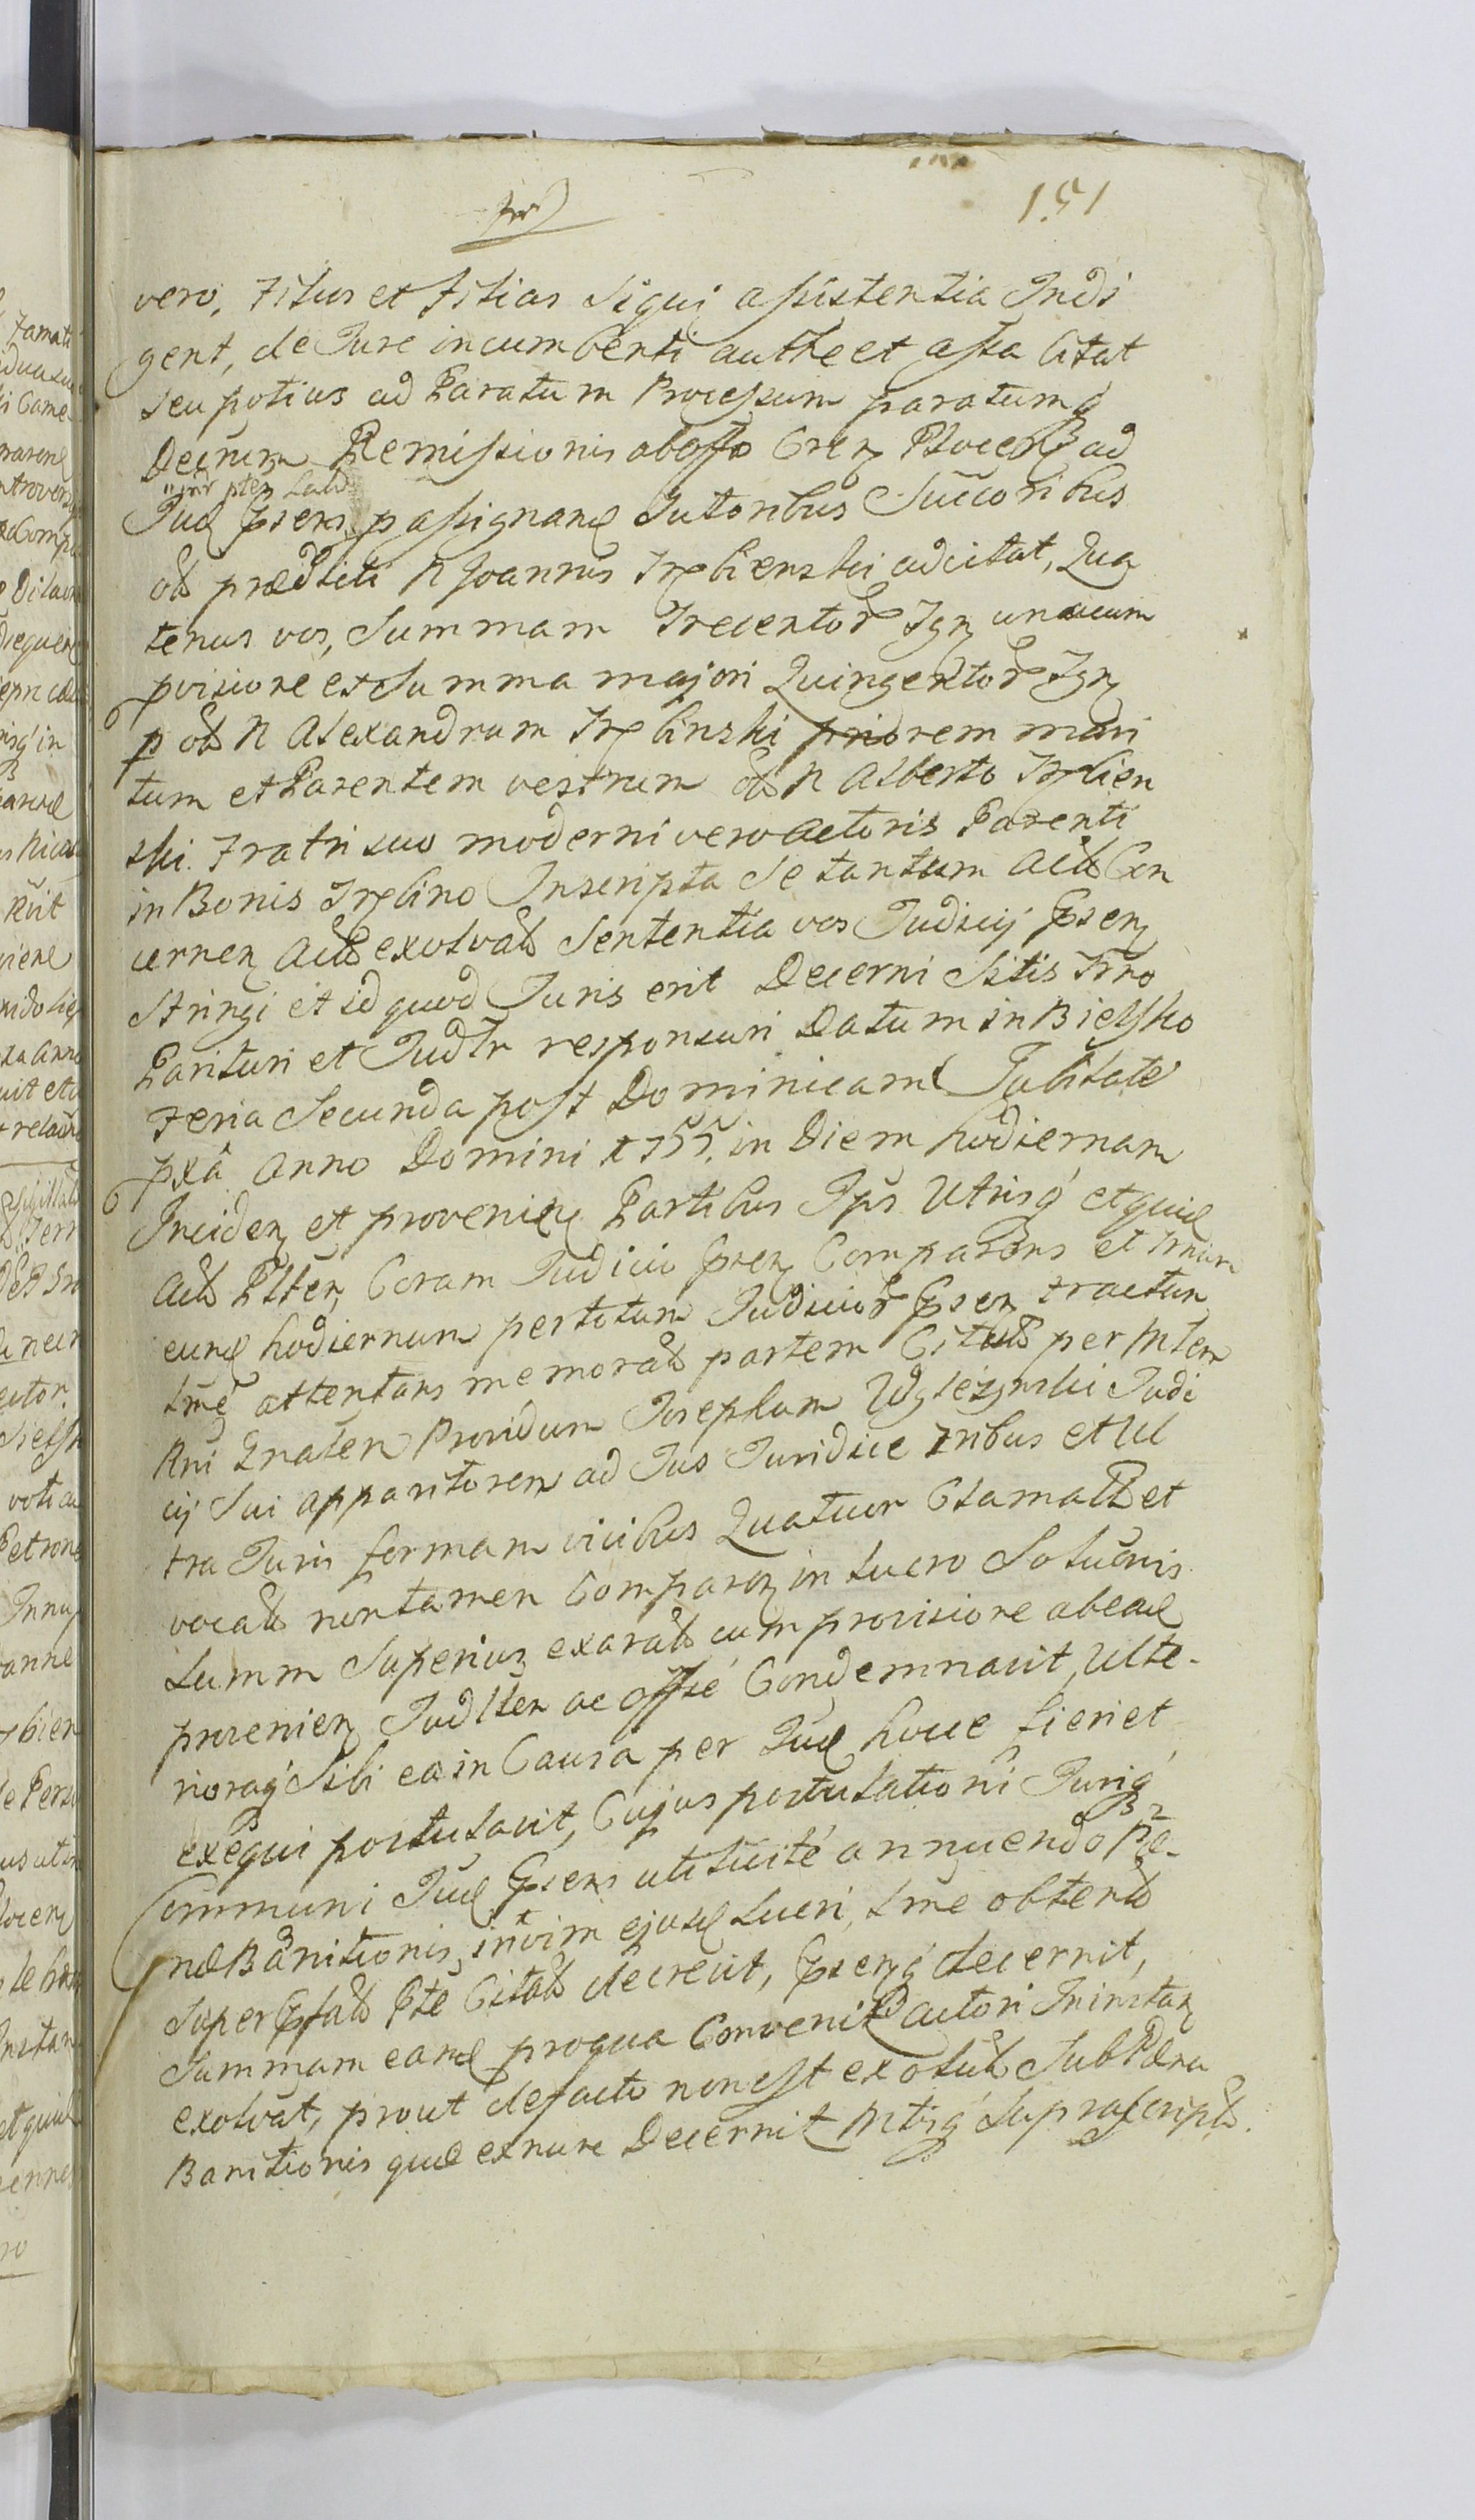 151
vero, Filios et Filias siqui assistentia Indi
gent, de Jure incumbenti authe et assa Citat
seu potius ad Paratum Processum paratumq
Decrum Remissionis ab offo Cren Plocen ad
Jud psens p assignand Tutoribus Succoribus
olb prædicti N Joannis Trzbienski adcitat, Qua
tenus vos, Summam Trecentor Fgn unacum
pvisione et Summa majori Quingentor Fgn
p olb N Alexandrum Trzbinski priorem mari
tum et Parentem vestrum olb N Alberto Trzbien
ski Fratri suo moderni vero Actoris Parenti
in Bonis Trzbino Inscripta se tantum Acta Con
cernen Actb exolvatb Sententia vos Judicij psen
stringi et id quod Juris erit Decerni Sitis Trno
Parituri et Judltr responsuri Datum in Bielsko
Feria Secunda post Dominicam Jubilate
pxa Anno Domini 1755. in Diem hodiernam
Inciden et provenien Partibus Ipis Utrisq et quid
Actb Plten Coram Judicio psen Comparens et Trnum
eund hodiernum pertotum Judicior psen tractum
Ime attentans memoratb partem Citatb per Mtem
Rni Gnalen Providum Josephum Wgleżynski Judi
cij Sui apparitorem ad Jus Juridice Tribus et Ul
tra Juris formam vicibus Quatuor Clamatb et
vocatb non tamen Comparen in lucro Solucnis
Summ Superius exaratb cum provisione abead
provenien Judlter ac offse Condemnavit, Ulte-
rioraq Sibi ea in Causa per Jud hocce fieri et
exequi postulavit, Cujus postulationi Juriq
Communi Jud psens uti licite annuendo Pæ-
nd Banitionis, in vim ejusd lucri, Ime obtentb
Super psatb Pte Citatb decrevit, psenq decernit,
Summam eand proqua Convenit Actori Ininstan
exolvat, prout defacto non est exolutb Sub Pæna
Banitionis quæ exnunc Decernit Mtisq Suprascriptb.